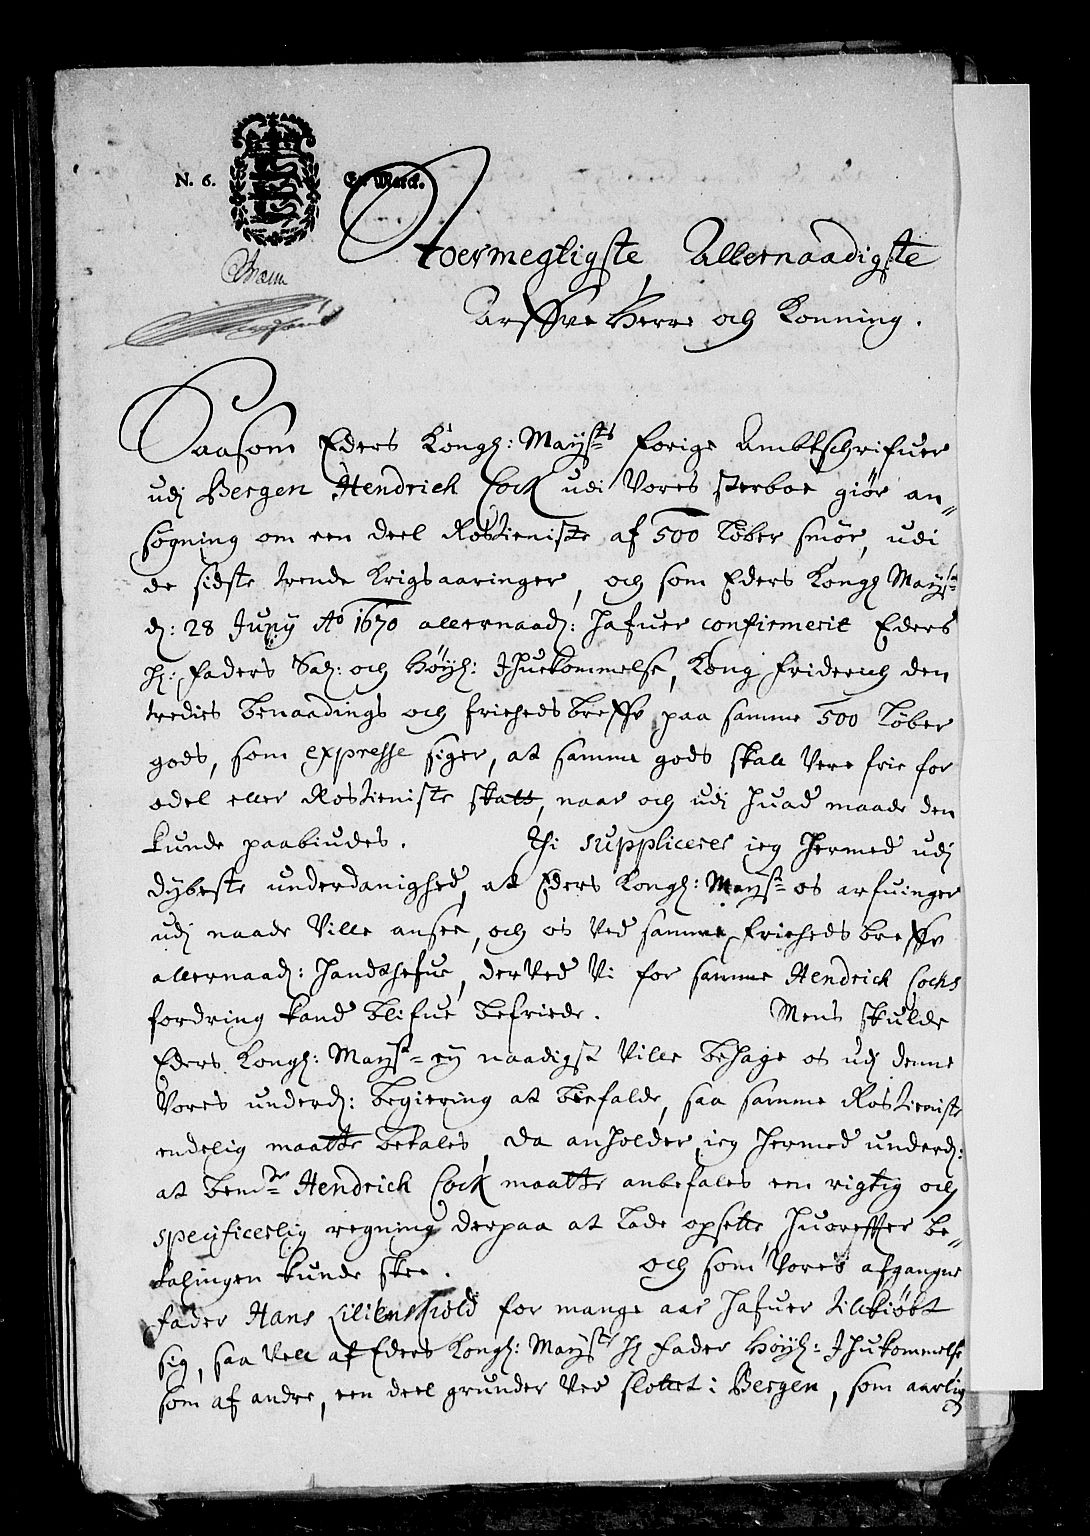 N. 6. En Marck.
Stoermegtigste, Allernaadigste
Arffve Herre och Konning.
Saasom Eders Kongl: Mayts forige Ambtschrifuer
udj Bergen Hendrich Cock udi Vores sterboe giør an-
søgning om een deel Rostieniste af 500 løber smør, udi
de sidste trende krigsaaringer, och som Eders Kongl Mayst
d: 28 Junij Ao 1670 allernaad: hafuer confirmerit Eders
H: Faders Sal: och Høyl: Ihuekommelse, Kong Friderich den
tredies benaadings och friehedsbreff paa samme 500 løber
gods, som expresse siger, at samme gods skall vere frie for
odel eller Rostieniste skatt, naar och udj huad maade den
kunde paabiudes. Thi suppliceres ieg hermed udj
dybeste underdanighed, at Eders Kongl: Mayst os arfuinger
udj naade ville ansee, och os ved samme friehedsbreff
allernaad: handthefue, derved vi for samme Hendrich Cocks
fordring kand blifue befriede. Mens skulde
Eders Kongl: Mayst ey naadigst ville behage os udj denne
vores underd: begiering at befalde, saa samme Rostieniste
endelig maatte betales, da anholder ieg hermed underd:
at bemte Hendrich Cock maatte anbefales een rigtig och
specificerlig regning derpaa at lade opsette, huorefter be-
talingen kunde skee. Och som vores afgangne
fader Hans Lilienskiold for mange aar hafuer tilkiøbt
sig, saa vell af Eders Kongl: Mayts Hl Fader Høyl: Ihukommelse
som af andre, een deel grunder ved slottet i Bergen, som aarlig